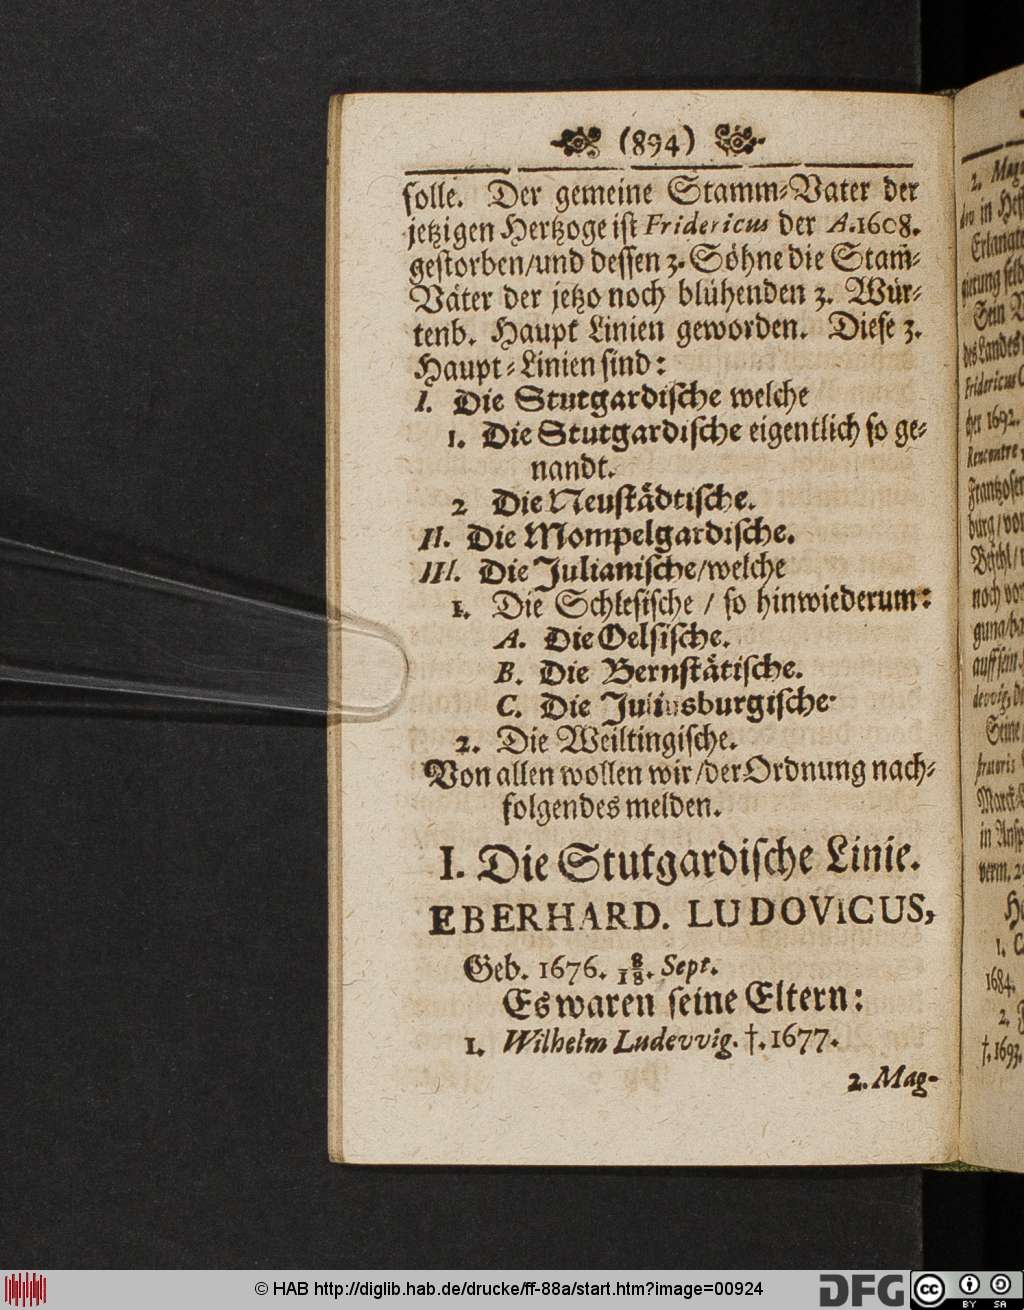 (894)
solle. Der gemeine Stamm-Vater der
jetzigen Hertzoge ist Fridericus der A. 1608.
gestorben/und dessen 3. Söhne die Stam̄-
Väter der jetzo noch blühenden 3. Wür-
tenb. Haupt Linien geworden. Diese 3.
Haupt-Linien sind:
I. Die Stutgardische welche
1. Die Stutgardische eigentlich so ge-
nandt.
2 Die Neustädtische.
II. Die Mompelgardische.
III. Die Julianische/welche
1. Die Schlesische / so hinwiederum:
A. Die Oelsische.
B. Die Bernstätische.
C. Die Juliusburgische.
2. Die Weiltingische.
Von allen wollen wir/der Ordnung nach-
folgendes melden.
I. Die Stutgardische Linie.
EBERHARD. LUDOVICUS,
Geb. 1676. 8/18. Sept.
Es waren seine Eltern:
1. Wilhelm Ludevvig. †. 1677.
2. Mag-
2. Mag
in Hes
Erlanat
Sein
des Landes
Fridericus
1692.
Rencontre
Frantzosen
burg/
noch
auff sein
Seine
fratris
in Ansp
verm.
1. C
1684.
2.
†. 1693.
© HAB http://diglib.hab.de/drucke/ff-88a/start.htm?image=00924
DFG
cc
BY SA